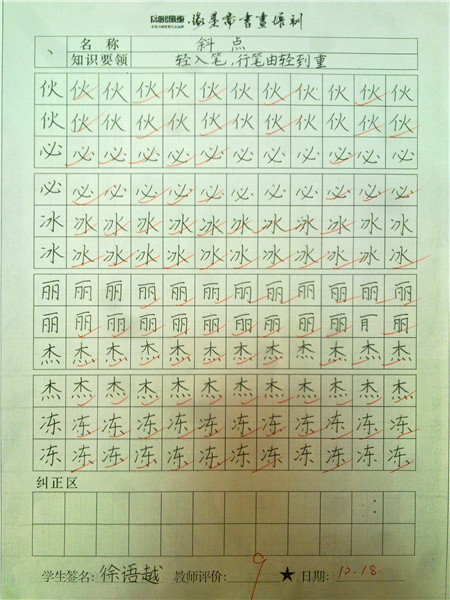 書畫培训
、 名称 斜点
知识要领 轻入笔,行笔由轻到重
伙 伙 伙 伙 伙 伙 伙 伙 伙 伙 伙 伙
伙 伙 伙 伙 伙 伙 伙 伙 伙 伙 伙 伙
必 必 必 必 必 必 必 必 必 必 必 必
必 必 必 必 必 必 必 必 必 必 必 必
冰 冰 冰 冰 冰 冰 冰 冰 冰 冰 冰 冰
冰 冰 冰 冰 冰 冰 冰 冰 冰 冰 冰 冰
丽 丽 丽 丽 丽 丽 丽 丽 丽 丽 丽 丽
丽 丽 丽 丽 丽 丽 丽 丽 丽 丽 丽
杰 杰 杰 杰 杰 杰 杰 杰 杰 杰 杰 杰
杰 杰 杰 杰 杰 杰 杰 杰 杰 杰 杰 杰
冻 冻 冻 冻 冻 冻 冻 冻 冻 冻 冻 冻
冻 冻 冻 冻 冻 冻 冻 冻 冻 冻 冻 冻
纠正区
学生签名:徐语越 教师评价: 9 ★ 日期: 10.18.